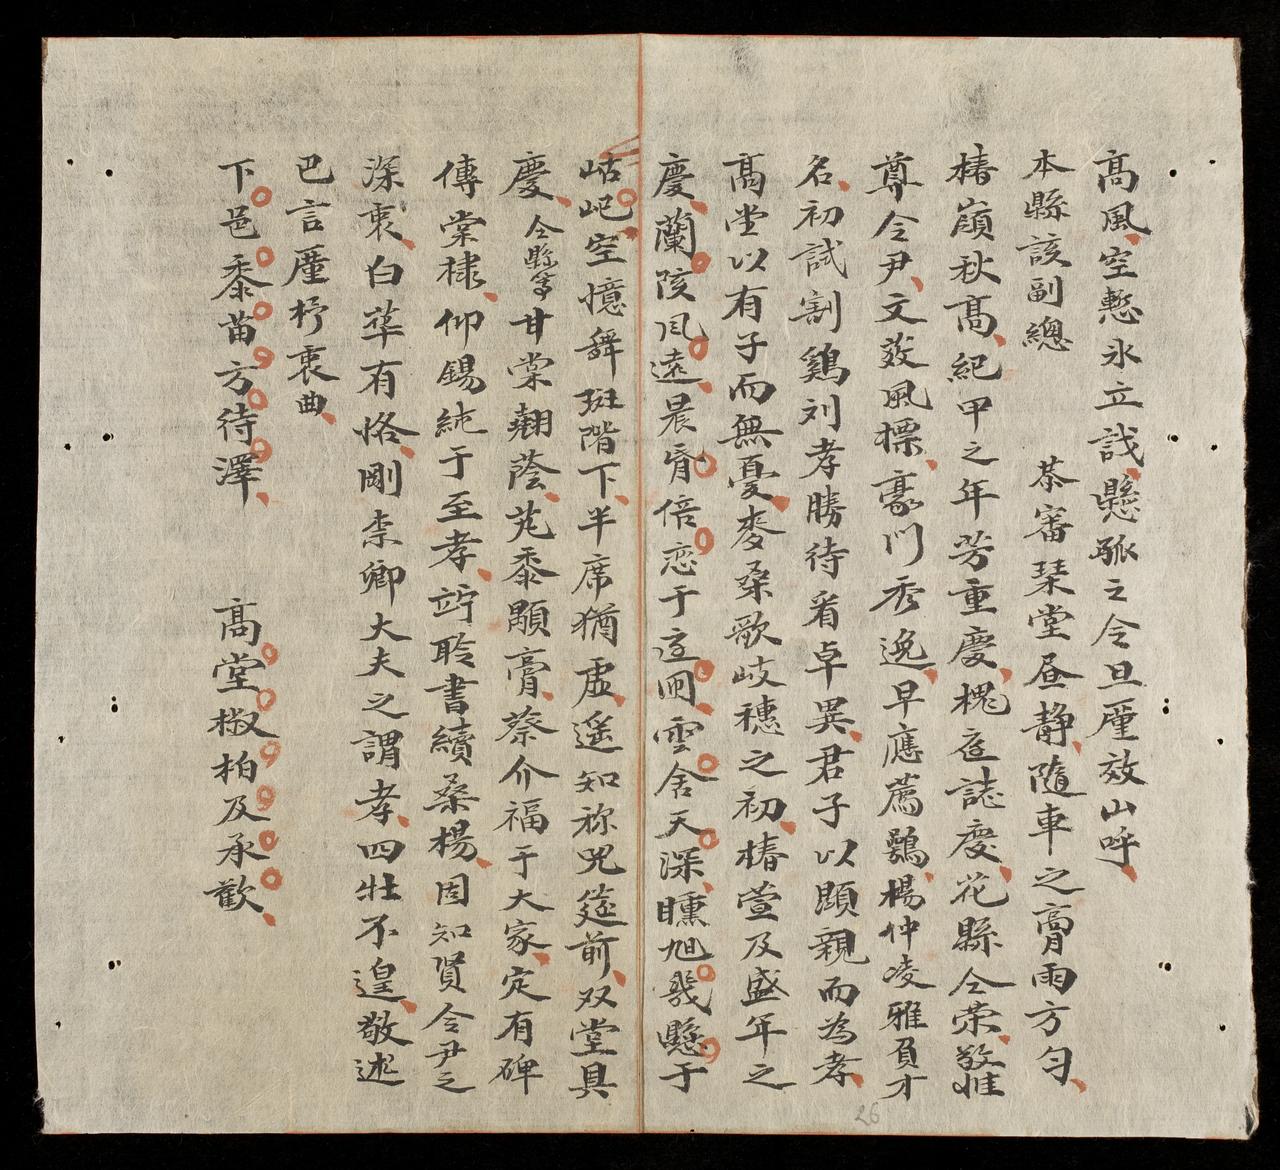 高風空慙氷立戢懸孤之令旦厪效山呼
本縣該副總 恭審琹堂昼静隨車之膏雨方匀
椿嶺秋高紀甲之年芳重慶槐庭誌慶花縣仝荣敬惟
尊令尹文蔎風標豪门秀逸早應薦鶚楊仲凌雅負才
名初試割鷄刘孝勝待看卓異君子以顕親而為孝
高堂以有子而無憂麥桒歌岐穗之初椿萱及盛年之
慶蘭陔风遠晨昏倍恋于庭闱雲舍天深曛旭幾懸于
岵屺空憶舜斑階下半席猶虚遥知祢兕筵前双堂具
慶仝縣等甘棠翹蔭芃黍顒膏蔡介福于大家定有碑
傳棠棣仰錫純于至孝竚聆書續桑楊固知賢令尹之
深衷白苹有恪剛柰卿大夫之謂孝四牡不遑敬述
巴言厪杼衷曲
下邑黍苗方待澤 高堂椒柏及承歡
26